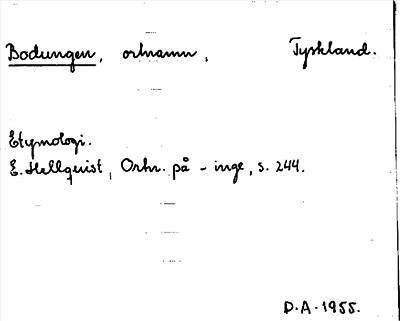 Bodungen, ortnamn, Tyskland.
Etymologi.
E. Hellquist, Ortn. på -inge, s. 244.
D.A. 1955.